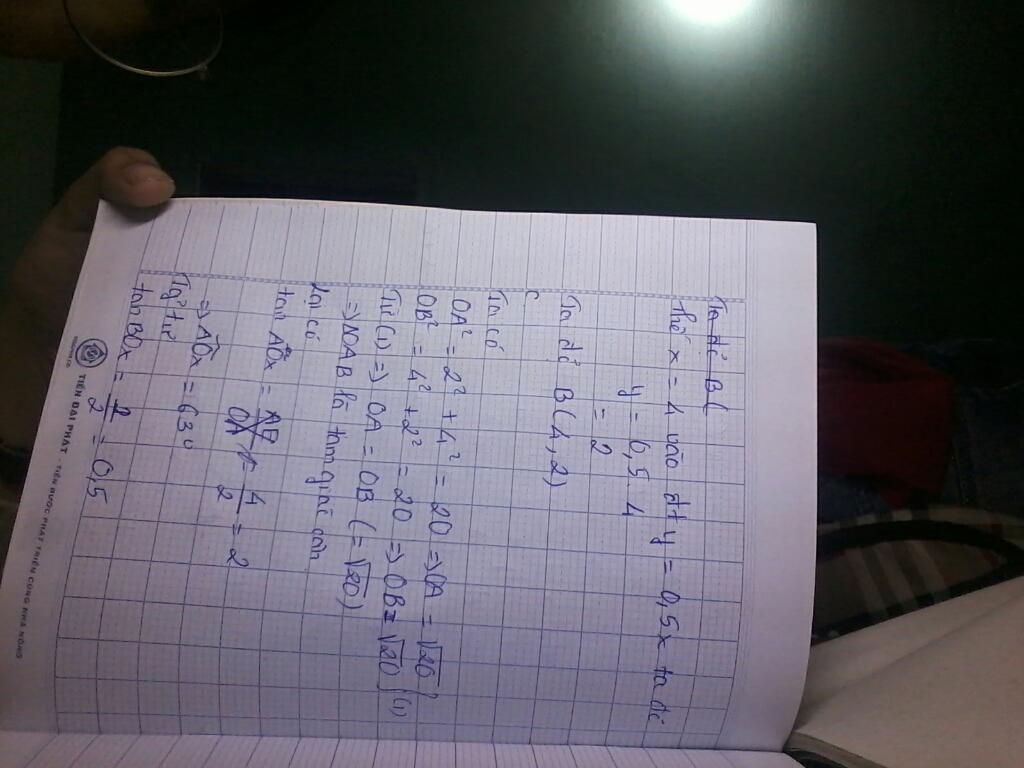 Tọa độ B(
Thế x = 4 vào đt y = 0,5x ta đc
y = 0,5 . 4
= 2
Tọa độ B(4,2)
C
Ta có
OA² = 2² + 4² = 20 => OA = √20
OB² = 4² + 2² = 20 => OB = √20 } (1)
Từ (1) => OA = OB (= √20)
=> △OAB là tam giác cân
Lại có
tan AOx = AB/OA = 4/2 = 2
=> AOx = 63°
Tg² tự
tan BOx = 2/2 = 0,5
TIẾN ĐẠI PHÁT - TIẾN BƯỚC PHÁT TRIỂN CÔNG NHÀ NÔNG